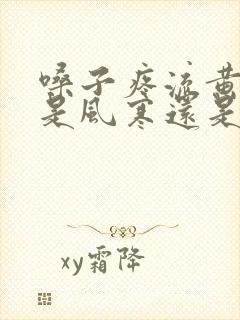 嗓子疼流黄
是風寒還是
xy霜降